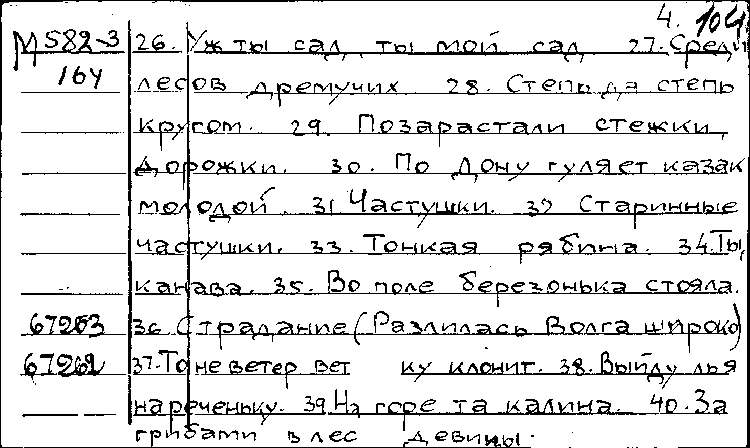 4. 104
М 582-3 26. Уж ты сад, ты мой сад 27. Среди
164 лесов дремучих. 28. Степь да степь
кругом. 29. Позарастали стежки,
дорожки. 30. По Дону гуляет казак
молодой. 31 Частушки. 32 Старинные
частушки. 33. Тонкая рябина. 34. Ты,
канава. 35. Во поле березонька стояла.
67263 36 Страдание (Разлилась Волга широко)
67262 37. То не ветер вет ку клонит. 38. Выйду ль я
нареченьку. 39. На горе та калина. 40. За
грибами в лес девицы.